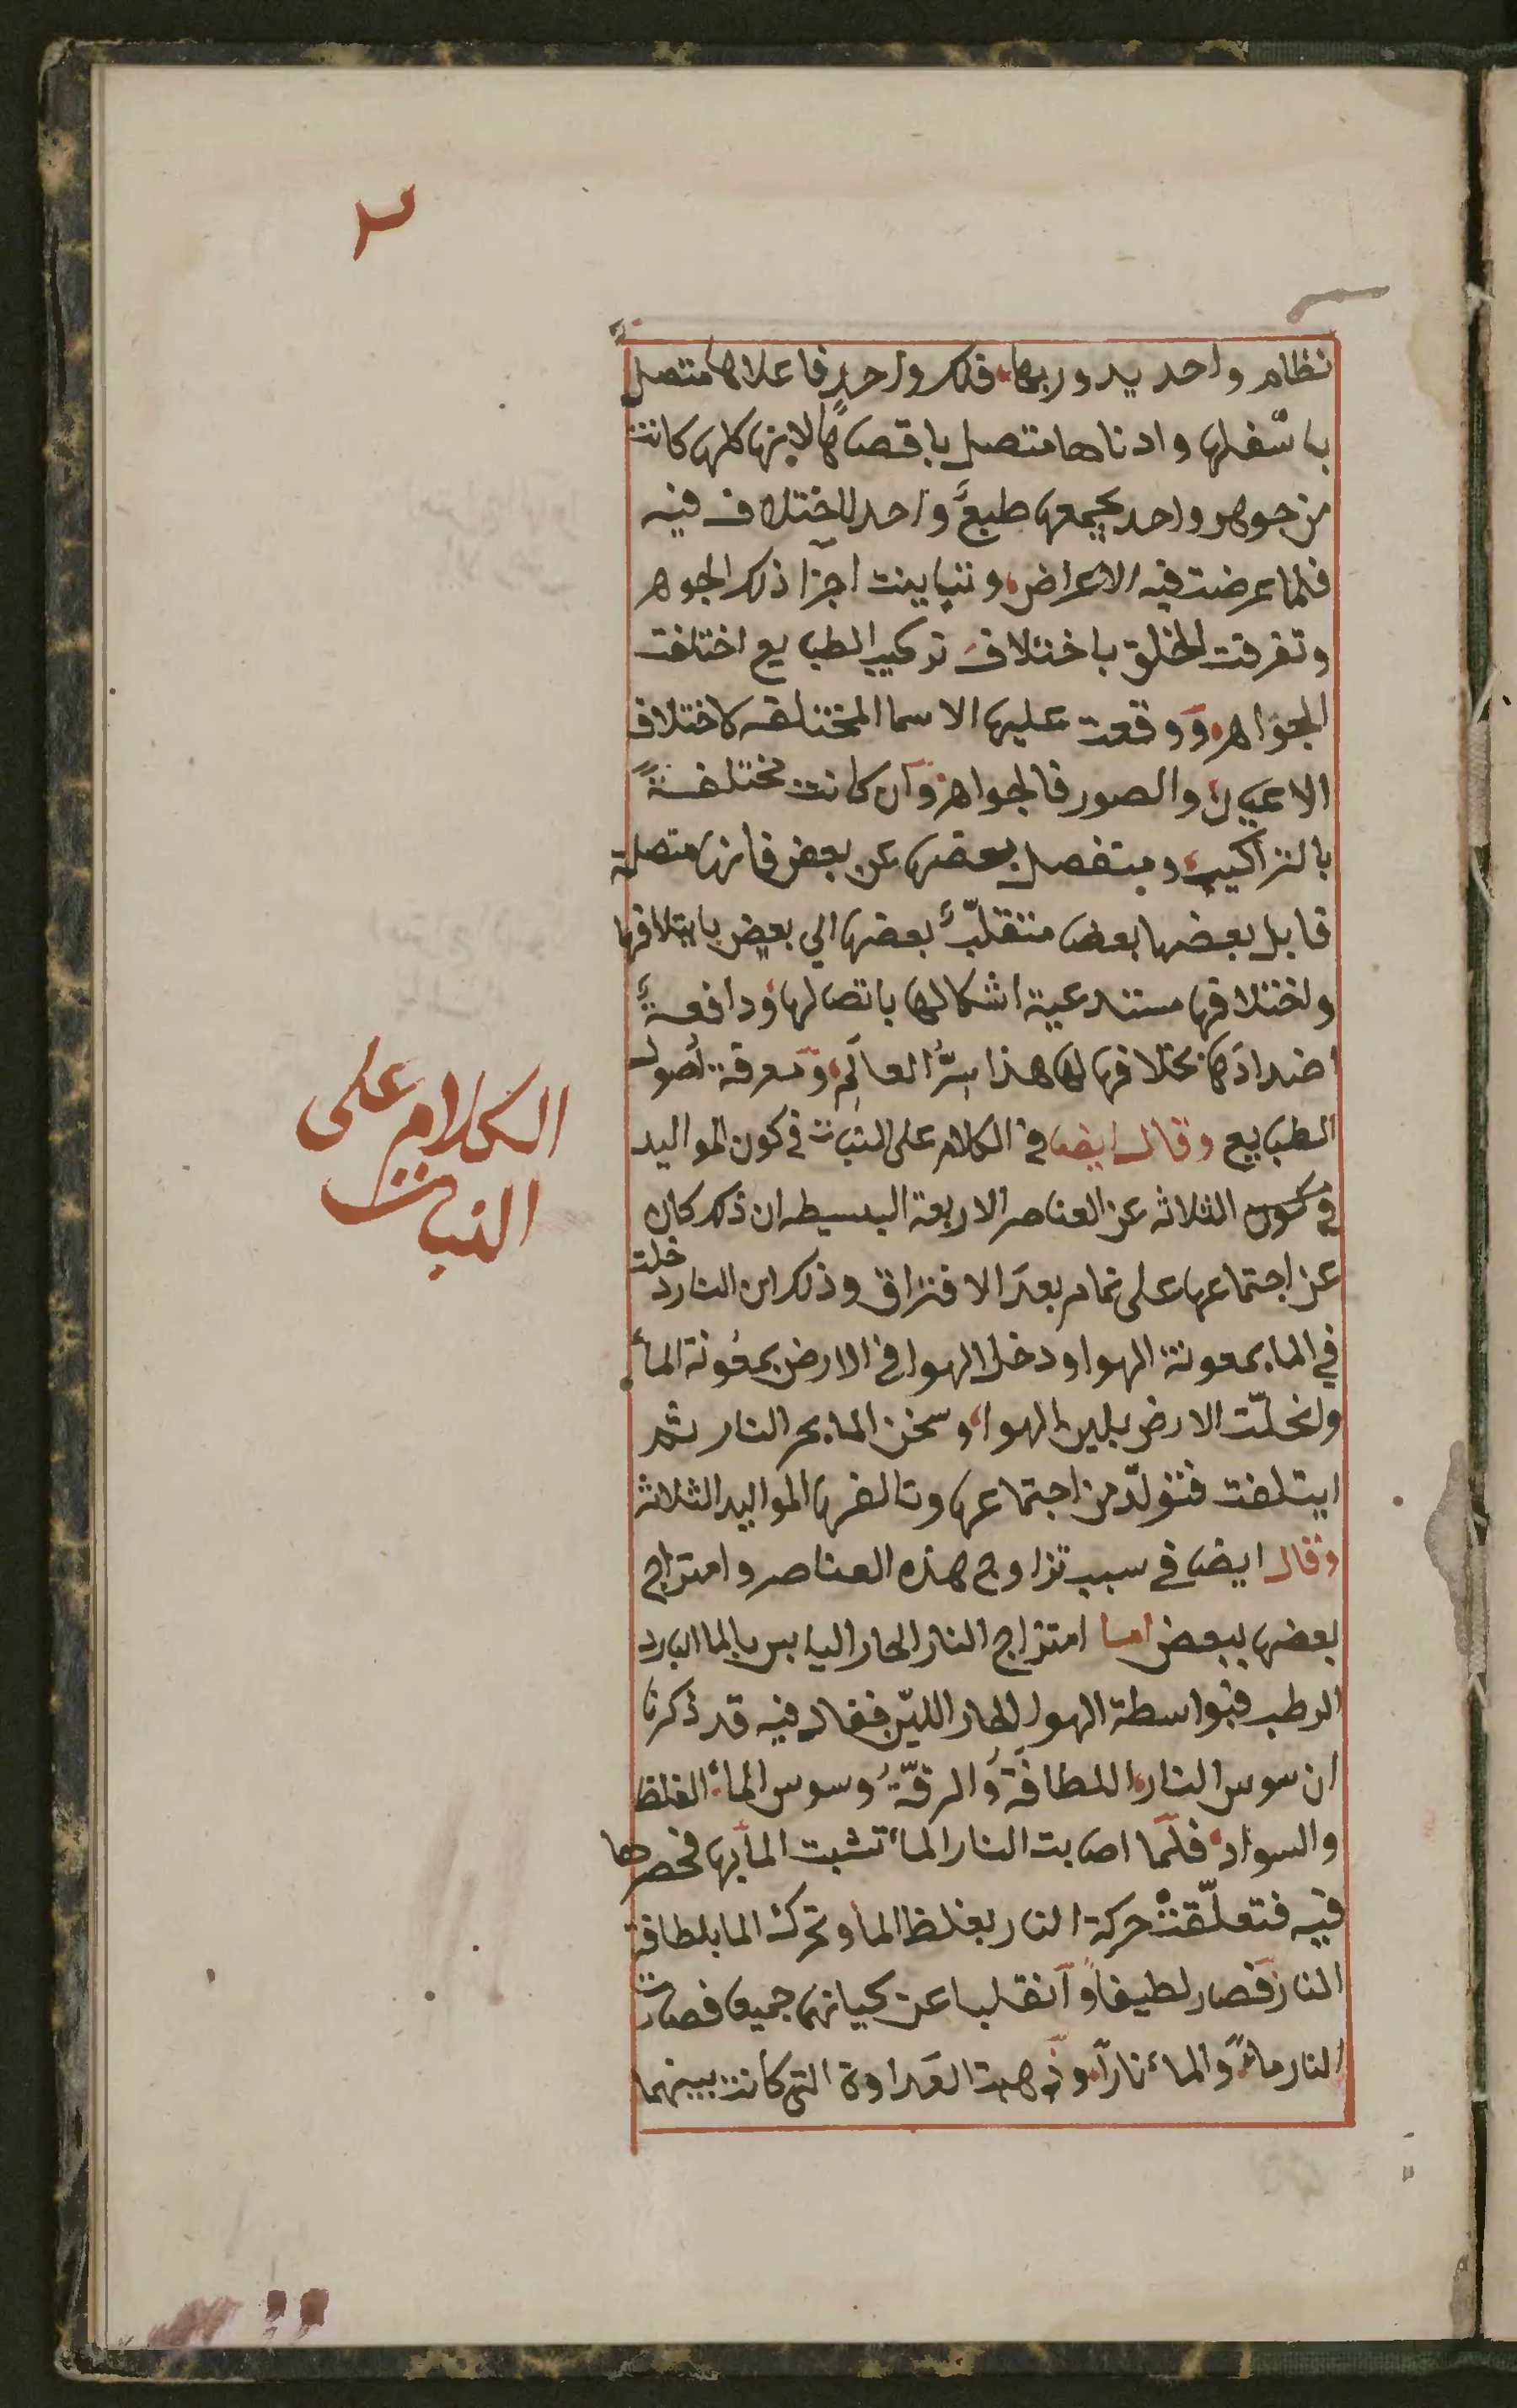 ٢
نظام واحد يدور بها فلك واحد فاعلاها متصل
باسفلها وادناها متصل باقصاها لانها كلها كانت
من جوهر واحد يجمعها طبع واحد لا اختلاف فيه
فلما عرضت فيه الاعراض وتباينت اجزا ذلك الجوهر
وتفرقت الخلق باختلاف تركيب الطبايع اختلفت
الجواهر ووقعت عليها الاسما المختلفه كاختلاف
الاعيان والصور فالجواهر وان كانت مختلفةً
بالتراكيب ومتفصل بعضها عن بعض فانها متصلة
قابل بعضها بعضا منتقلبٌ بعضها الي بعض بايتلافها
واختلافها مستدعية اشكالها باتصالها ودافعةً
اضدادها بخلافها لها هذا سرُّ العالَم ومعرفة اصول
الطبايع وقال ايضا في الكلام على النبات في كون المواليد
في كون الثلاثه عن العناصر الاربعة البسيطه ان ذلك كان
عن اجتماعها على تمام بعد الافتراق وذلك ان النار دخلت
في الما بمعونة الهوا ودخل الهوا في الارض بمعونة المأ
وانحلّت الارض بلين الهوا وسخن الما بحر النار ثم
ايتلفت فتولّد من اجتماعها وتالفها المواليد الثلاثة
وقال ايضا في سبب تزاوج هذه العناصر وامتزاج
بعضها ببعض اما امتزاج النار الحار اليابس بالما البارد
الرطب فبواسطة الهوا الحار الليّن فقال فيه قد ذكرنا
ان سوس النار اللطافة والرقّة وسوس المأ الغلظ
والسواد فلمّا اصابت النار المأ تشبت المأ بها فحصرها
فيه فتعلّقت حركة النار بغلظ المأ وتحركت الما بلطافة
النار فصار لطيفاً وانقلبا عن كيانهما جميعا فصارت
النار مأً والمأ ناراً وذهبت العداوة التي كانت بينهما
الكلام على
النبات